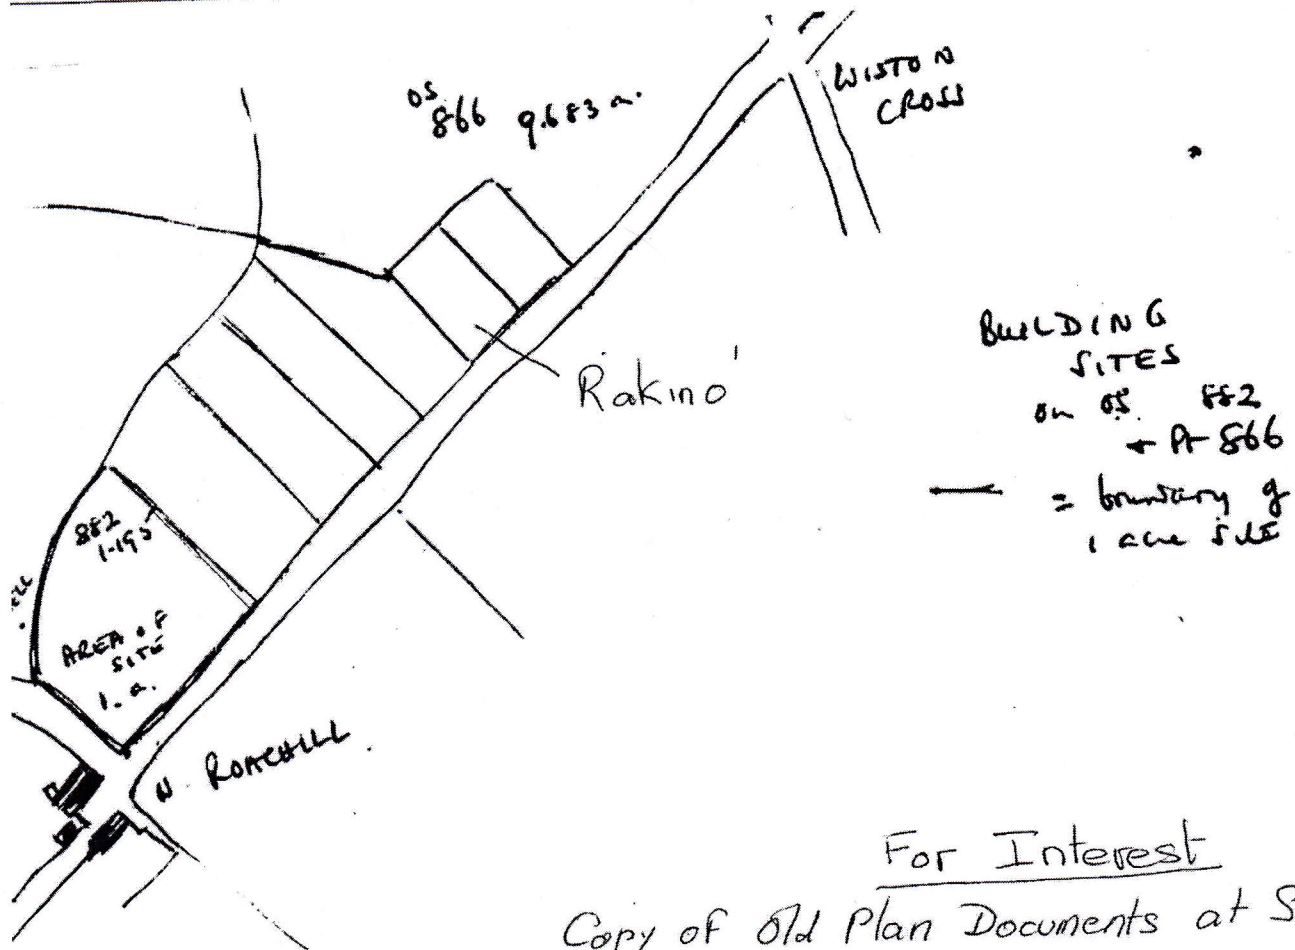 OS
866 9.683 a.
WISTON
CROSS
Rakino'
BUILDING
SITES
on OS. 882
+ Pt 866
= boundary of
1 acre site
882
1-195
AREA OF
SITE
1. a.
N. ROACHILL.
For Interest
Copy of Old Plan Documents at S